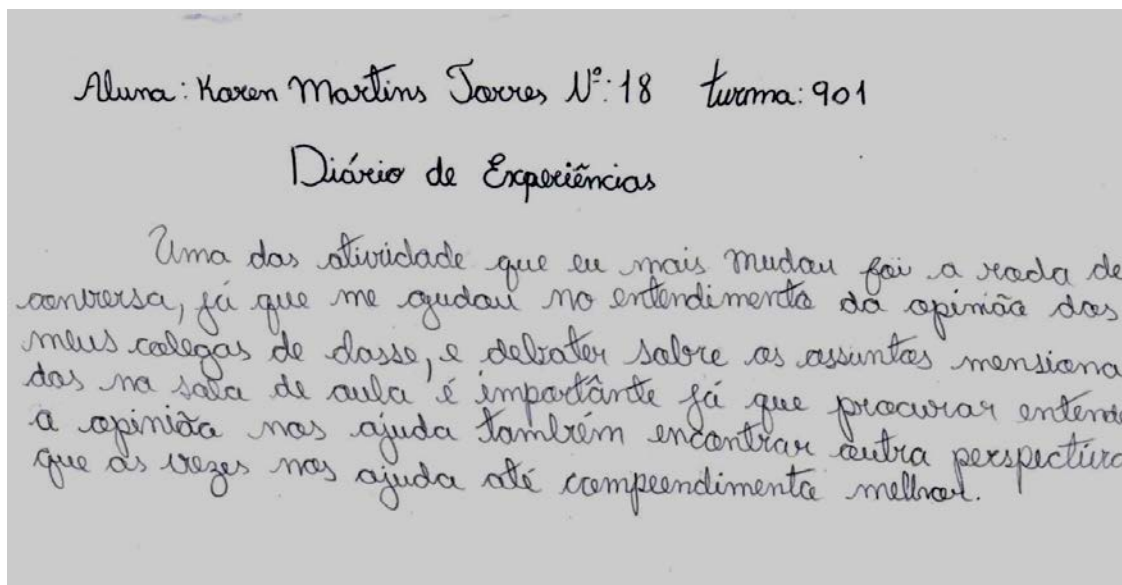 Aluna: Karen Martins Torres Nº: 18 turma: 901
Diário de Experiências
Uma das atividade que eu mais mudou foi a roda de
conversa, já que me ajudou no entendimento da opinião dos
meus colegas de classe, e debater sobre os assuntos mensiona
dos na sala de aula é importânte já que procurar entende
a opinião nos ajuda também encontrar outra perspectiva
que as vezes nos ajuda até compeendimento melhor.